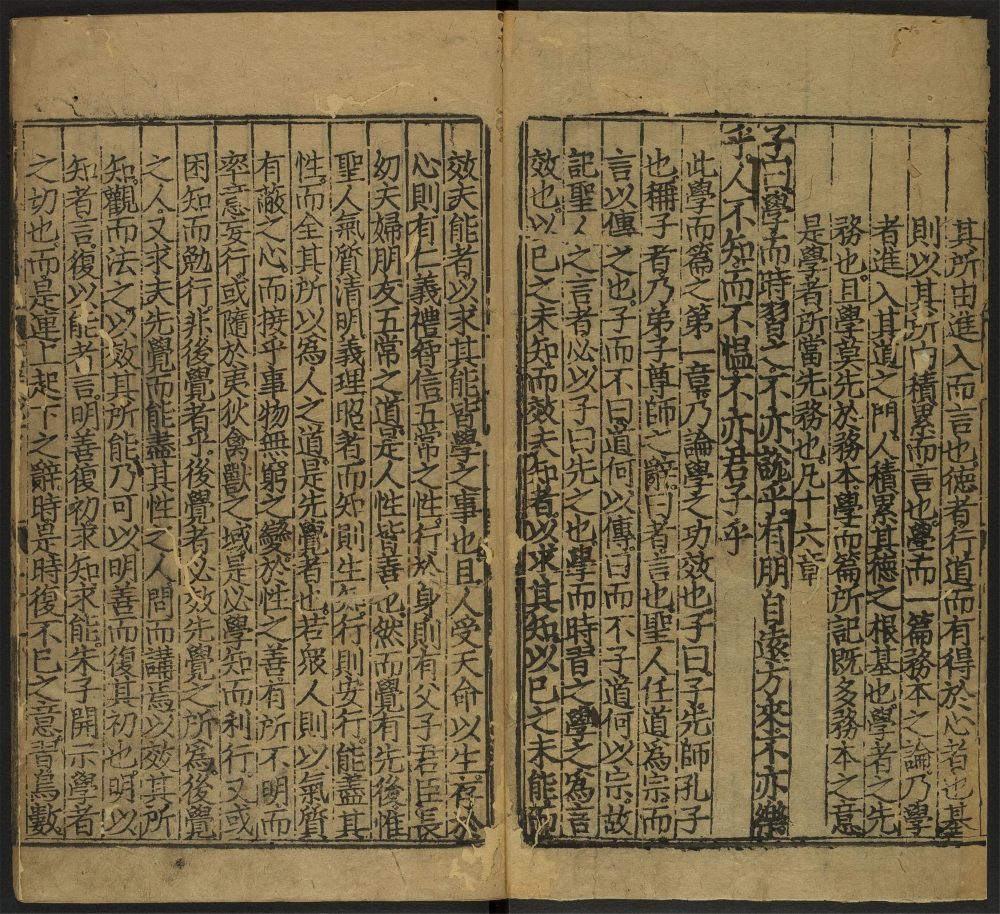 其所由進入而言也德者行道而有得於心者也基
則以其所積累而言也學而一篇務本之論乃學
者進入其道之門人積累其德之根基也學者之先
務也且學莫先於務本學而篇所記既多務本之意
是學者所當先務也凡十六章
子曰學而時習之不亦說乎有朋自遠方來不亦樂
乎人不知而不慍不亦君子乎
此學而篇之第一章乃論學之功效也子曰子先師孔子
也稱子者乃弟子尊師之辭曰者言也聖人任道為宗而
言以傳之也子而不曰道何以傳曰而不子道何以宗故
記聖人之言者必以子曰先之也學而時習之學之為言
效也以己之未知而效夫知者以求其知以己之未能而
效夫能者以求其能皆學之事也且人受天命以生存於
心則有仁義禮智信五常之性行於身則有父子君臣長
幼夫婦朋友五常之道是人性皆善也然而覺有先後惟
聖人氣質清明義理昭著而知則生知行則安行能盡其
性而全其所以為人之道是先覺者也若衆人則以氣質
有蔽之心而接乎事物無窮之變於性之善有所不明而
率意妄行或隨於夷狄禽獸之域是必學知而利行又或
困知而勉行非後覺者乎後覺者必效先覺之所為後覺
之人又求夫先覺而能盡其性之人問而講焉以效其所
知觀而法之以效其所能乃可以明善而復其初也明以
知者言復以能者言明善復初求知求能朱子開示學者
之切也而是連上起下之辭時是時復不已之意習鳥數